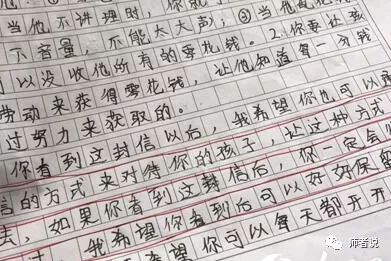 当他不讲理时，你就
下音量，不能大大声；③当他
可以没收他所有的零花钱。2.你要让孩
劳动来获得零花钱，让他知道每一分钱
过努力来获取的。
你看到这封信以后，我希望你也可以
信的方式来对待你的孩子，让这种方式
去，如果你看到这封信后，你一定会
我希望你看到后可以好好保
希望你可以每天都开开
师者说